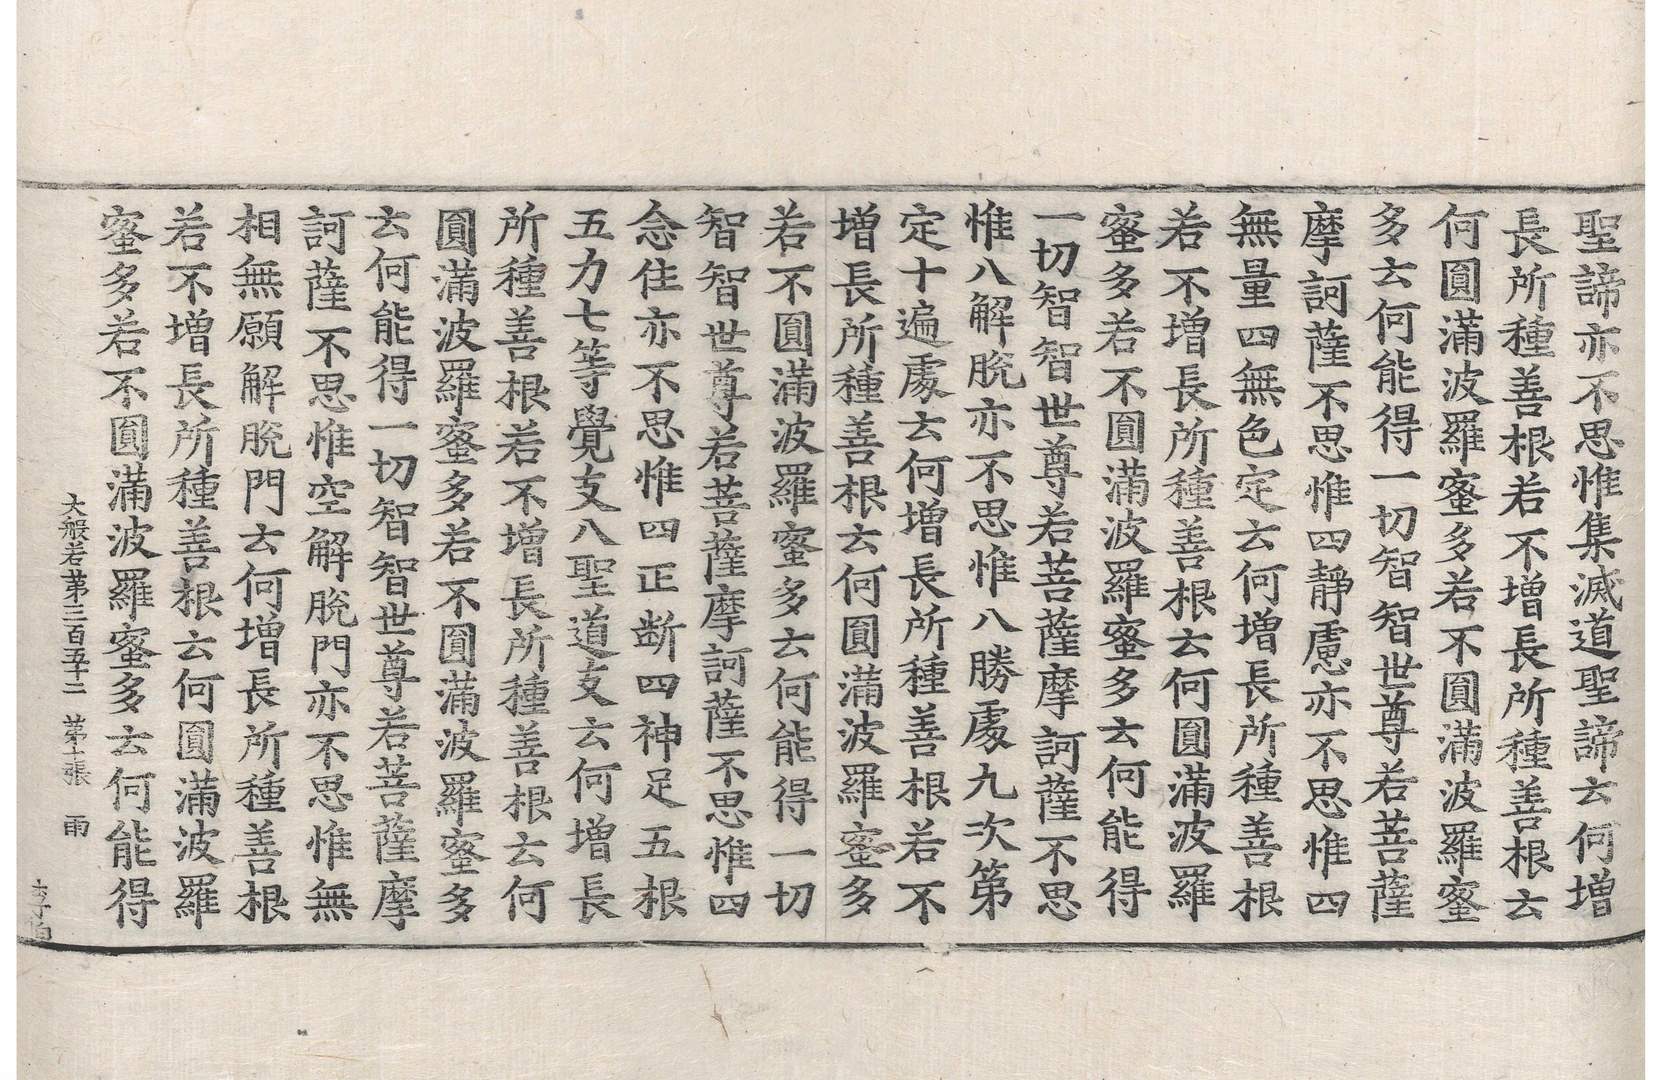 聖諦亦不思惟集滅道聖諦云何增
長所種善根若不增長所種善根云
何圓滿波羅蜜多若不圓滿波羅蜜
多云何能得一切智智世尊若菩薩
摩訶薩不思惟四靜慮亦不思惟四
無量四無色定云何增長所種善根
若不增長所種善根云何圓滿波羅
蜜多若不圓滿波羅蜜多云何能得
一切智智世尊若菩薩摩訶薩不思
惟八解脫亦不思惟八勝處九次第
定十遍處云何增長所種善根若不
增長所種善根云何圓滿波羅蜜多
若不圓滿波羅蜜多云何能得一切
智智世尊若菩薩摩訶薩不思惟四
念住亦不思惟四正断四神足五根
五力七等覺支八聖道支云何增長
所種善根若不增長所種善根云何
圓滿波羅蜜多若不圓滿波羅蜜多
云何能得一切智智世尊若菩薩摩
訶薩不思惟空解脫門亦不思惟無
相無願解脫門云何增長所種善根
若不增長所種善根云何圓滿波羅
蜜多若不圓滿波羅蜜多云何能得
大般若第三百五十二 第十張 雨